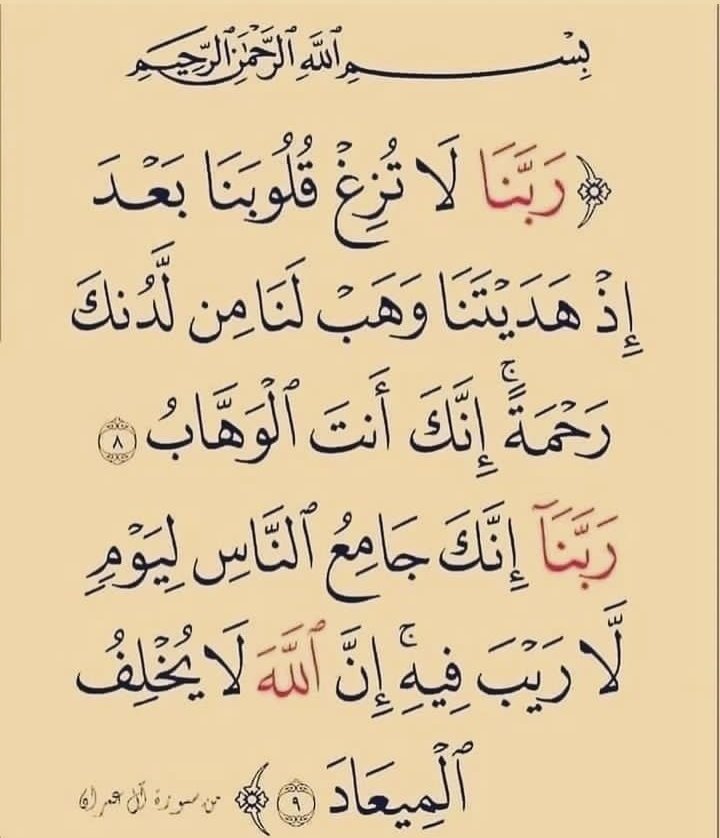 بِسْمِ اللَّهِ الرَّحْمَٰنِ الرَّحِيمِ
﴿رَبَّنَا لَا تُزِغْ قُلُوبَنَا بَعْدَ
إِذْ هَدَيْتَنَا وَهَبْ لَنَا مِن لَّدُنكَ
رَحْمَةً ۚ إِنَّكَ أَنتَ ٱلْوَهَّابُ ٨
رَبَّنَآ إِنَّكَ جَامِعُ ٱلنَّاسِ لِيَوْمٍ
لَّا رَيْبَ فِيهِ ۚ إِنَّ ٱللَّهَ لَا يُخْلِفُ
ٱلْمِيعَادَ ٩﴾ من سورة آل عمران